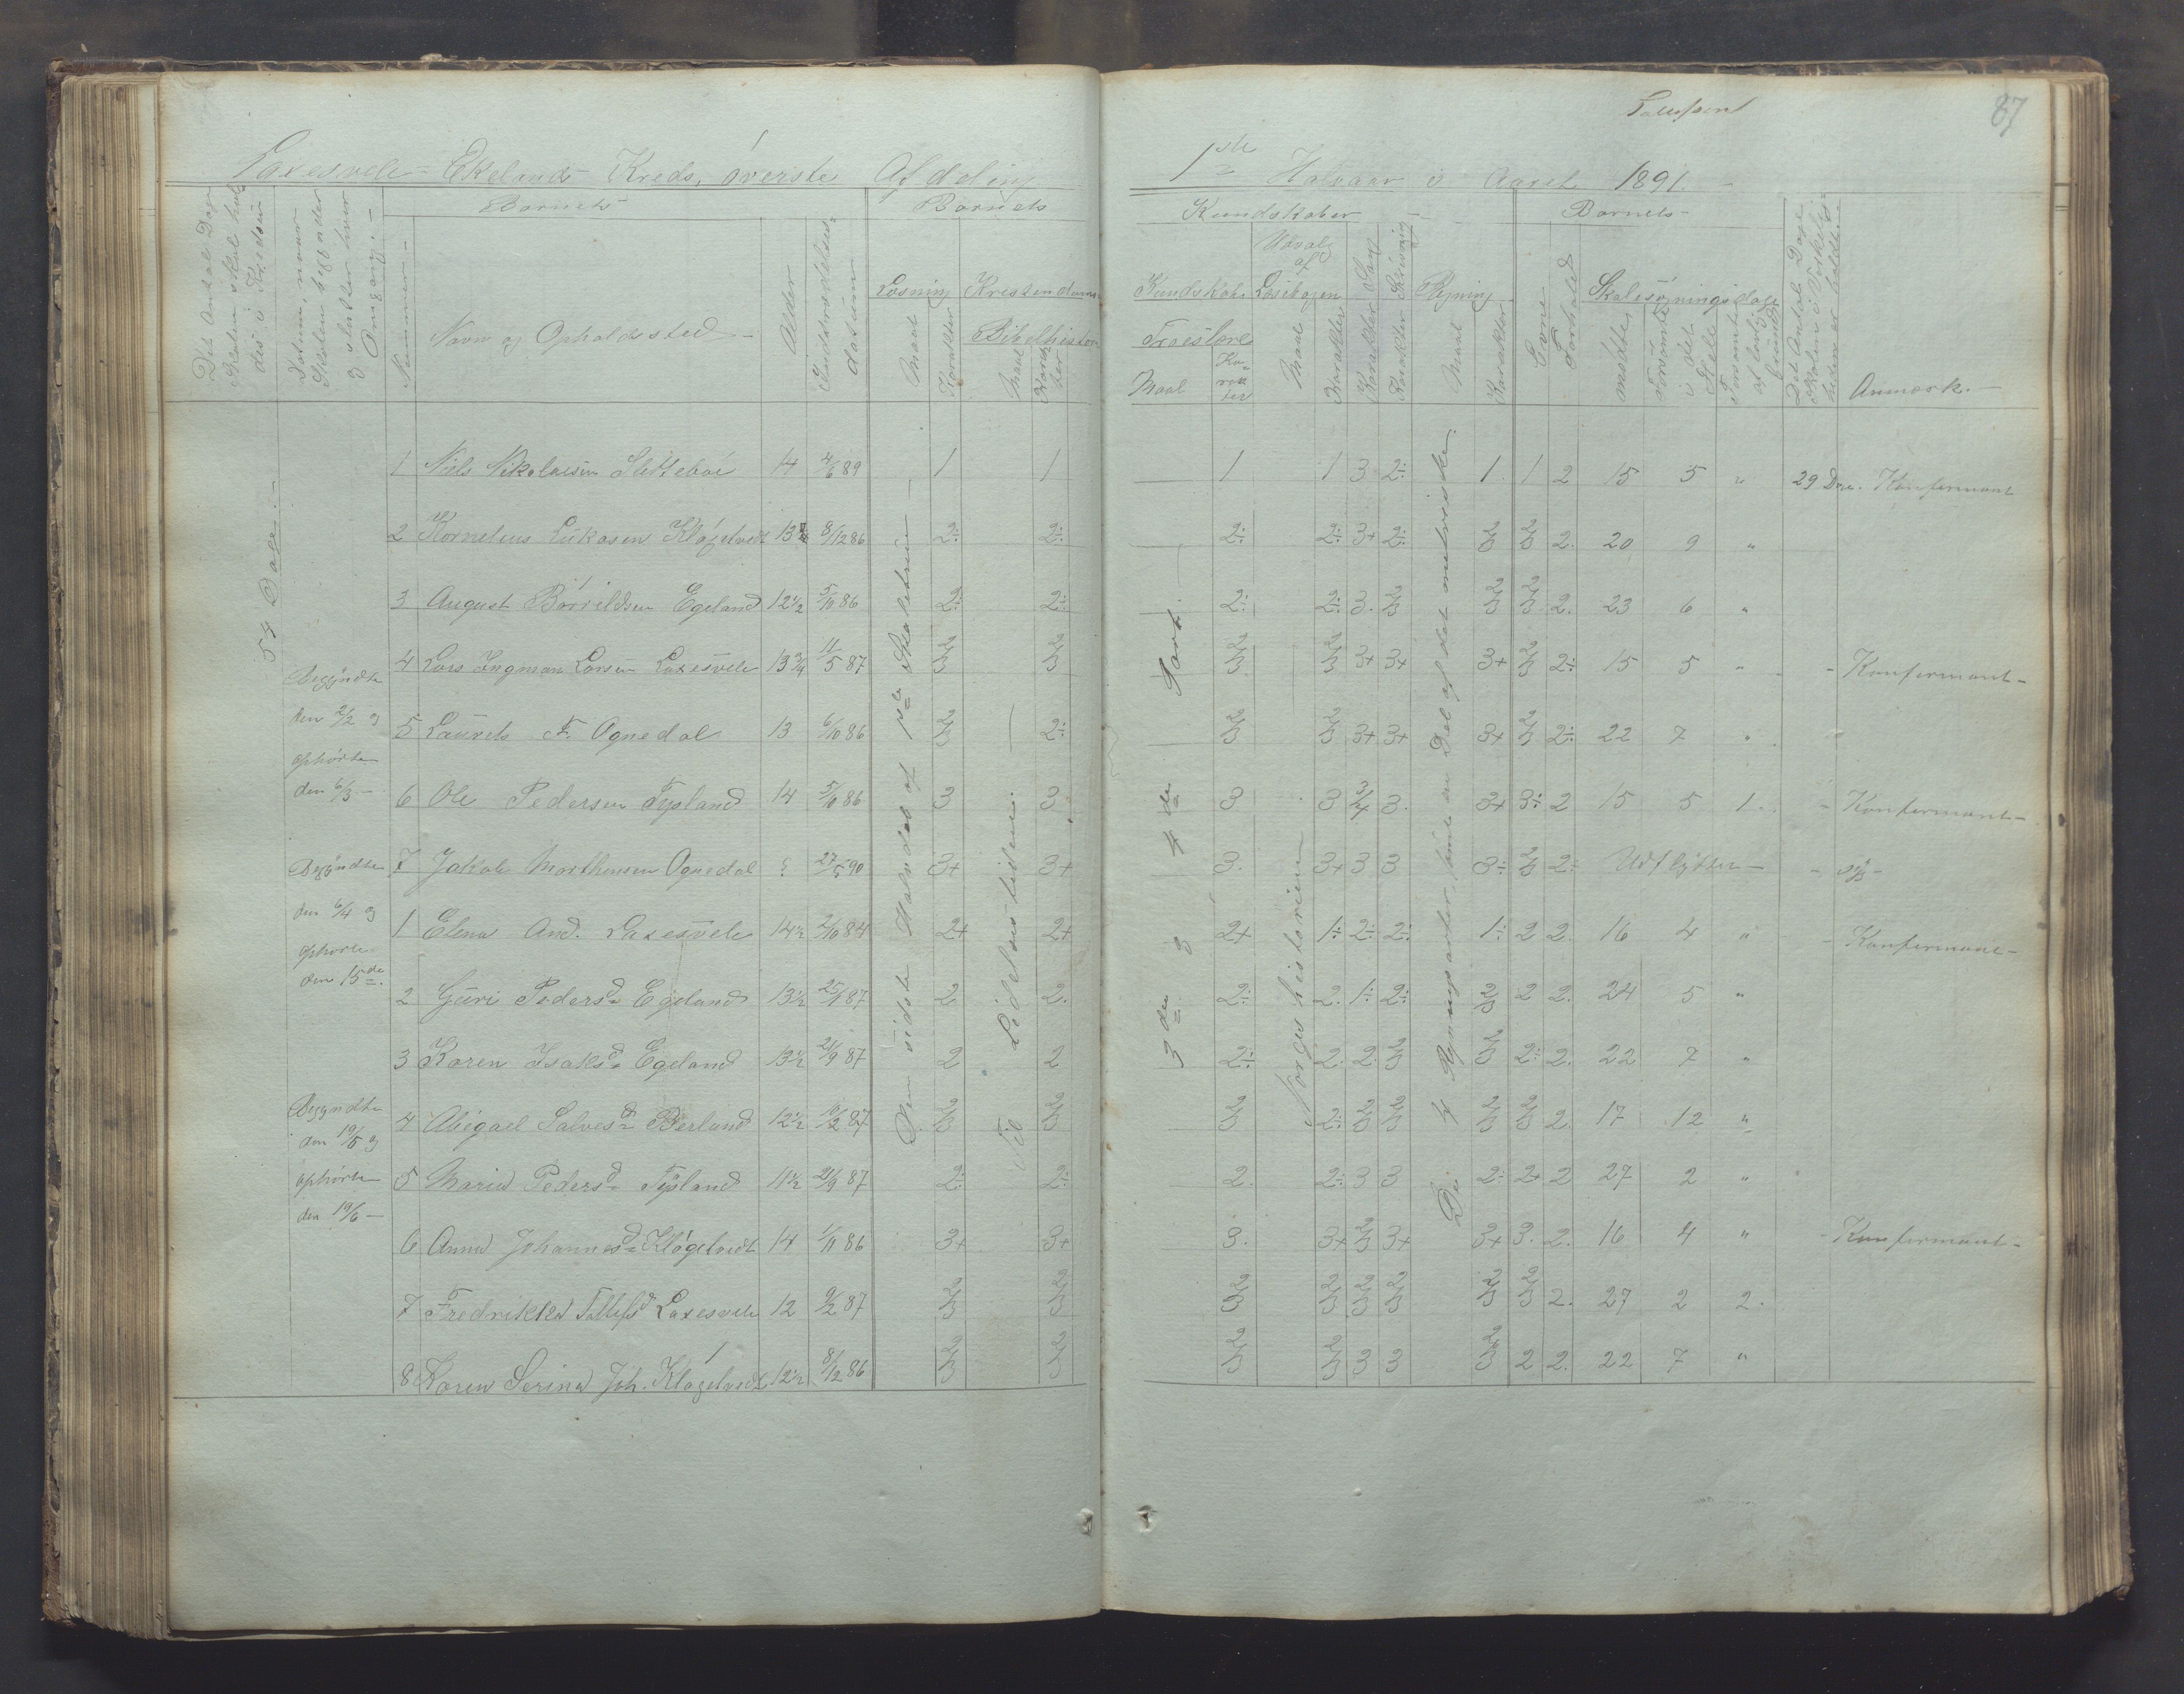 87
Laxesvele= Ekelands Kreds, øverste Afdeling
1ste Halvaar i Aaret 1891.
Det Antal Dage Skolen skal holdes i Kredsen
Datum, naar Skolen begynder og slutter hver Omgang.
Nummer
Barnets
Navn og Opholdssted
Alder
Indtrædelses= datum
Barnets
Læsning
Maal
Karakter
Kristendoms
Bibelhistorie
Maal
Karakter
Kundskaber
Kundskab
Troeslære
Maal
Ka= rak ter
Udvalg af Læsebogen
Maal
Karakter
Karakter Sang
Karakter Skrivning
Regning
Maal
Karakter
Barnets
Evne
Forhold
Skolesøgningsdage
mødte
forsømte i det Hele
Det Antal Dage Skolen i Virkeligheden er holdt
Anmærk.
54 Dage.
Begyndte
den 2/2 og
ophørte
den 6/3
Begyndte
den 6/4 og
ophørte
den 15de
Begyndte
den 19/5 og
ophørte
den 19/6
Den sidste Halvdel af
Til Lidelseshistorien.
3die & 4de Part.
Norgeshistorien
De 4 Regningsarter, samt en Del af det praktiske.
1 Niels Nikolaisen Slettebø 14 4/6 89 1 1 1 1 3 2÷ 1 1 2 15 5 " 29 Dage. Konfirmant
2 Kornelius Lukasen Kløgetvedt 13 8/12 86 2÷ 2÷ 2÷ 2÷ 3+ 2÷ 2/3 2/3 2. 20 9 "
3 August Børrildsen Egeland 12½ 5/10 86 2÷ 2÷ 2÷ 2÷ 3. 2/3 2/3 2/3 2. 23 6 "
4 Lars Ingman Larsen Laxesvele 13¾ 11/5 87 2/3 2/3 2/3 2/3 3+ 3+ 3+ 2/3 2÷ 15 5 " Konfirmant
5 Laurits F. Ognedal 13 6/10 86 2/3 2÷ 2/3 2/3 3+ 3+ 3+ 2/3 2÷ 22 7 "
6 Ole Pedersen Tysland 14 5/10 86 3 3 3 3 3/4 3. 3+ 3÷ 2 15 5 1. Konfirmant
7 Jakob Morthensen Ognedal 27/5 90 3+ 3+ 3. 3+ 3 3 3÷ 2/3 2÷ Udflytter
1 Elena And. Laxesvele 14½ 2/10 84 2+ 2+ 2+ 1÷ 2÷ 2÷ 1÷ 2 2. 16 4 " Konfirmant
2 Guri Pedersd Egeland 13½ 25/1 87 2 2. 2÷ 2. 1÷ 2÷ 2/3 2 2. 24 5 "
3 Karen Isaksd Egeland 13½ 21/9 87 2 2 2÷ 2. 2. 2/3 2/3 2÷ 2. 22 7 "
4 Abigael Salvesd Berland 12½ 10/2 87 2/3 2/3 2/3 2÷ 2/3 2/3 2/3 2/3 2. 17 12 "
5 Maria Pedersd Tysland 11½ 21/9 87 2÷ 2÷ 2. 2÷ 3 3 2÷ 2+ 2 27 2 "
6 Anna Johannesd Kløgetvedt 14 1/11 86 3+ 3+ 3. 3+ 2/3 3+ 3+ 3. 2. 16 4 " Konfirmant
7 Fredrikka Tollefsd Laxesvele 12 9/2 87 2/3 2/3 2/3 2/3 2/3 2/3 2/3 2/3 2. 27 2 2.
8 Karen Serina Joh. Kløgetvedt 12½ 8/12 86 2/3 2/3 2/3 2/3 3 3 2/3 2 2. 22 7 "